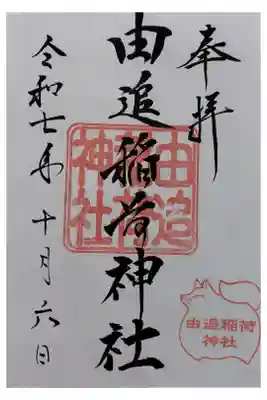 奉拝
由追稲荷神社
令和七年十月六日
由追稲荷神社
由追稲荷
神社